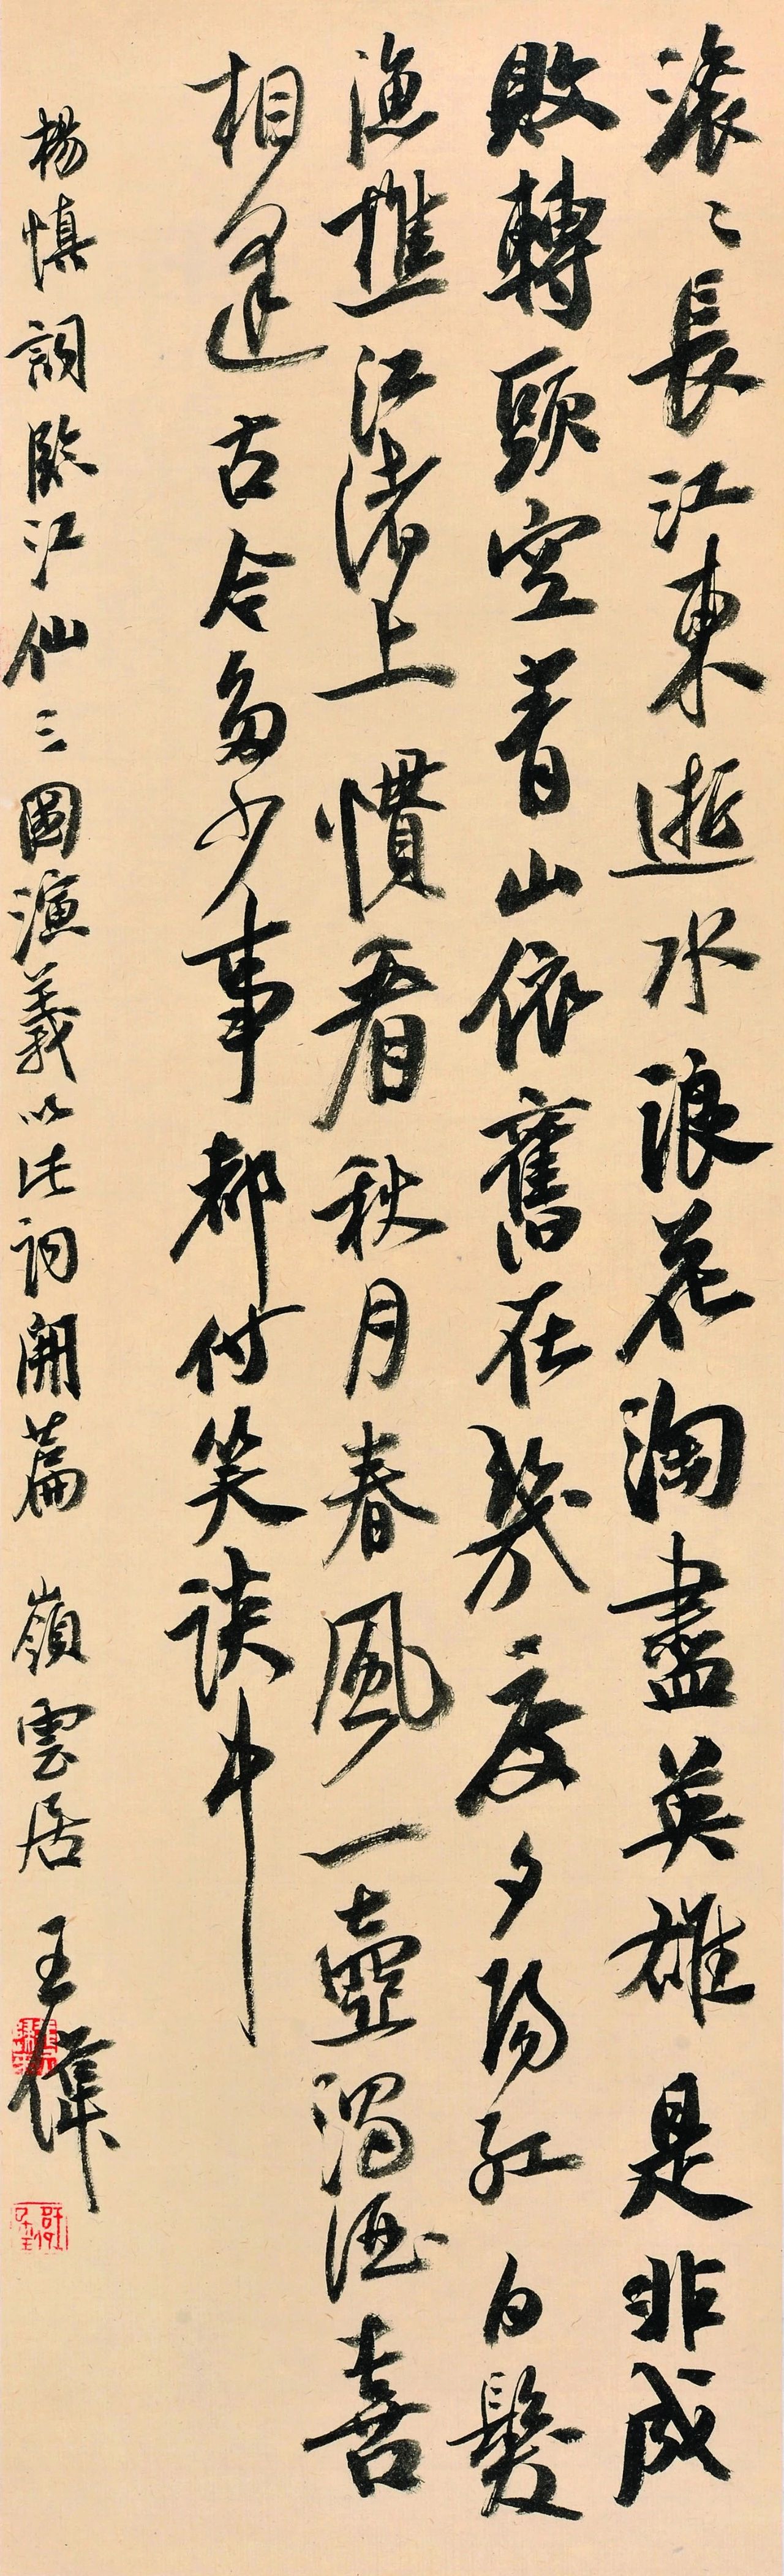 滚〻長江東逝水浪花淘盡英雄是非成
敗轉頭空青山依舊在幾度夕陽紅白髮
漁樵江渚上慣看秋月春風一壺濁酒喜
相逢古今多少事都付笑談中
楊慎詞臨江仙三國演義以此詞開篇 嶺雲居 王偉